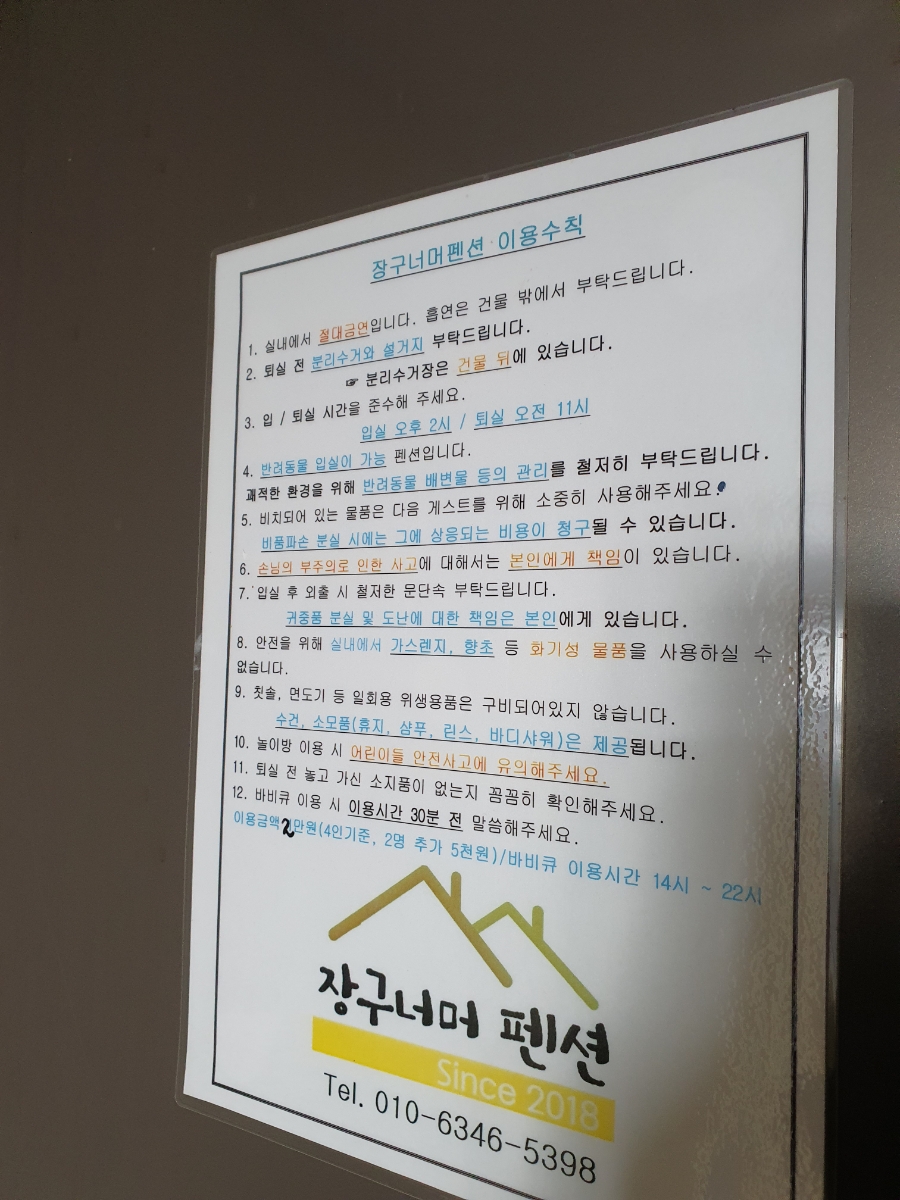 장구너머펜션 이용수칙
1. 실내에서 절대금연입니다. 흡연은 건물 밖에서 부탁드립니다.
2. 퇴실 전 분리수거와 설거지 부탁드립니다.
☞ 분리수거장은 건물 뒤에 있습니다.
3. 입 / 퇴실 시간을 준수해 주세요.
입실 오후 2시 / 퇴실 오전 11시
4. 반려동물 입실이 가능 펜션입니다.
쾌적한 환경을 위해 반려동물 배변물 등의 관리를 철저히 부탁드립니다.
5. 비치되어 있는 물품은 다음 게스트를 위해 소중히 사용해주세요.
비품파손 분실 시에는 그에 상응되는 비용이 청구될 수 있습니다.
6. 손님의 부주의로 인한 사고에 대해서는 본인에게 책임이 있습니다.
7. 입실 후 외출 시 철저한 문단속 부탁드립니다.
귀중품 분실 및 도난에 대한 책임은 본인에게 있습니다.
8. 안전을 위해 실내에서 가스렌지, 향초 등 화기성 물품을 사용하실 수
없습니다.
9. 칫솔, 면도기 등 일회용 위생용품은 구비되어있지 않습니다.
수건, 소모품(휴지, 샴푸, 린스, 바디샤워)은 제공됩니다.
10. 놀이방 이용 시 어린이들 안전사고에 유의해주세요.
11. 퇴실 전 놓고 가신 소지품이 없는지 꼼꼼히 확인해주세요.
12. 바비큐 이용 시 이용시간 30분 전 말씀해주세요.
이용금액 2만원(4인기준, 2명 추가 5천원)/바비큐 이용시간 14시 ~ 22시
장구너머 펜션
Since 2018
Tel. 010-6346-5398